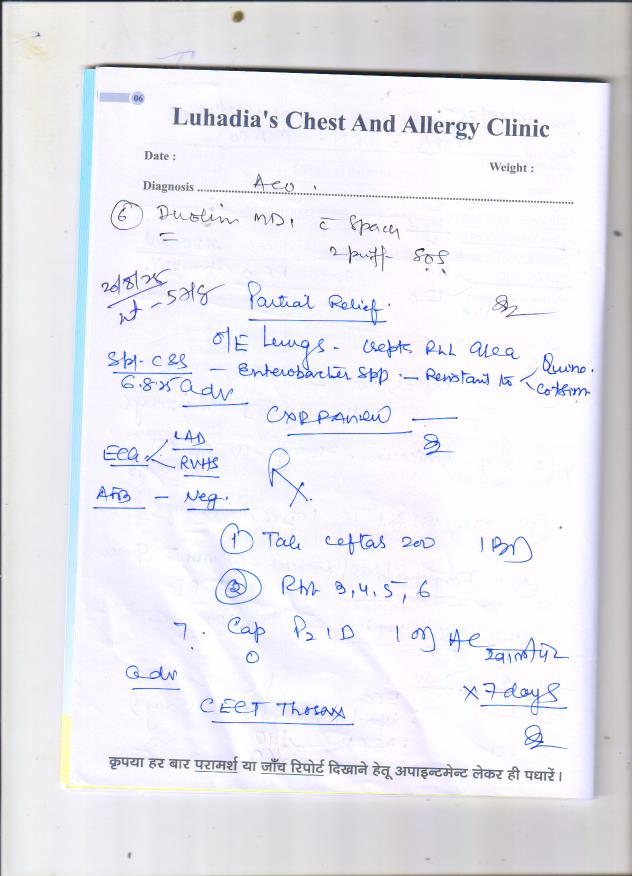 06
Luhadia's Chest And Allergy Clinic
Date :
Weight :
Diagnosis ............ ACO .
⑥ Duolin MDI c̄ Spacer
2 puff SOS
20/8/25
Wt - 52.8
Partial Relief.
O/E Lungs - Crepts RLL area
Spt. C&S - Enterobacter Spp. - Resistant to Quino. Cotrim
6.8.25
Adv
CXR PA view
ECG LAD
RVHS
Rx
AFB - Neg.
① Tab ceftas 200 1 BD
② Rpt 3, 4, 5, 6
7. Cap 1 OD AC
x 7 days
Adv
CECT Thorax
कृपया हर बार परामर्श या जाँच रिपोर्ट दिखाने हेतू अपाइन्टमेन्ट लेकर ही पधारें।